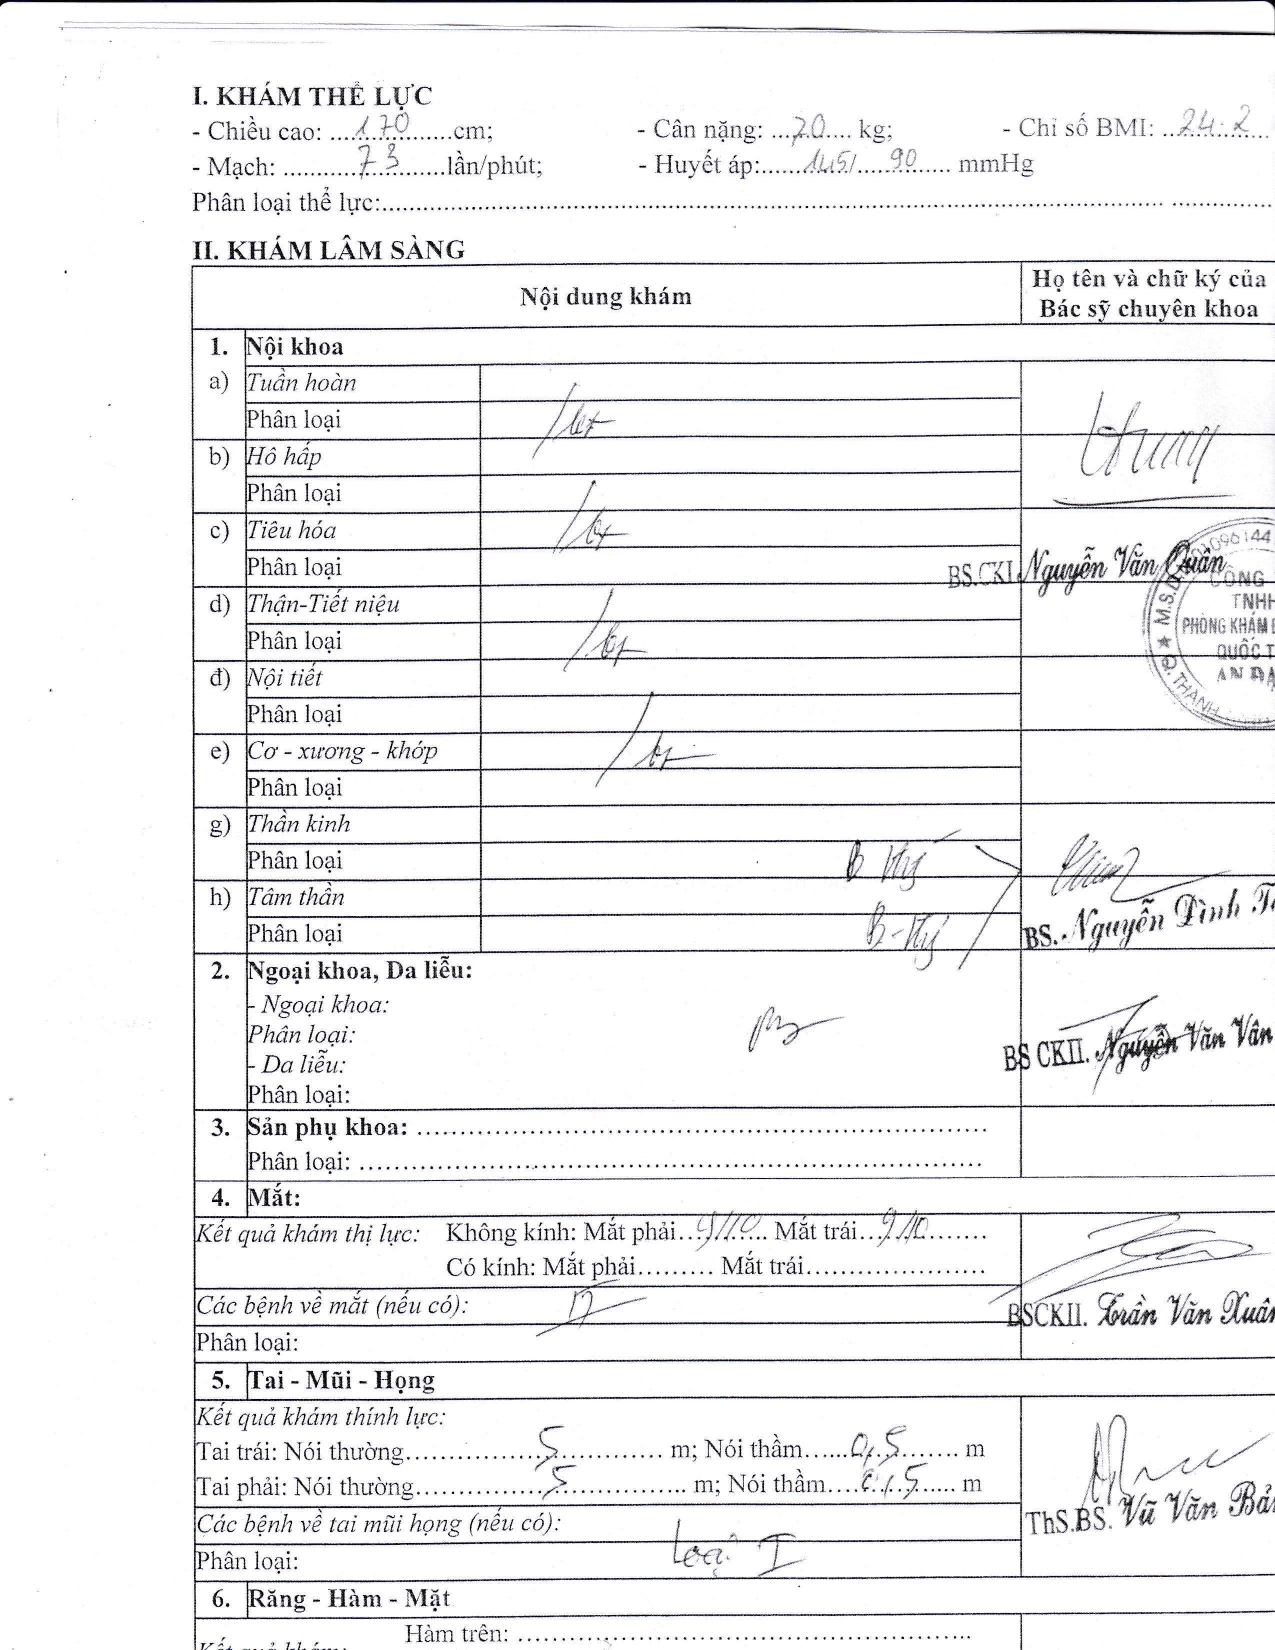 I. KHÁM THỂ LỰC
- Chiều cao: ....170....cm; - Cân nặng: ...70.... kg; - Chỉ số BMI: ..24.2..
- Mạch: ....73....lần/phút; - Huyết áp:......145/....90.... mmHg
Phân loại thể lực:....................
II. KHÁM LÂM SÀNG
Nội dung khám
Họ tên và chữ ký của
Bác sỹ chuyên khoa
1. Nội khoa
a) Tuần hoàn
Phân loại
b) Hô hấp
Phân loại
c) Tiêu hóa
Phân loại
BS.CKI. Nguyễn Văn Quân
M.S.D. 01096144
CÔNG
TNHH
PHÒNG KHÁM Đ
QUỐC T
AN ĐẠ
Q. THANH
d) Thận-Tiết niệu
Phân loại
đ) Nội tiết
Phân loại
e) Cơ - xương - khớp
Phân loại
g) Thần kinh
Phân loại
h) Tâm thần
Phân loại
BS. Nguyễn Đình
2. Ngoại khoa, Da liễu:
- Ngoại khoa:
Phân loại:
- Da liễu:
Phân loại:
BS CKII. Nguyễn Văn Vân
3. Sản phụ khoa: ....................
Phân loại: ....................
4. Mắt:
Kết quả khám thị lực: Không kính: Mắt phải..9/10.. Mắt trái...9/10........
Có kính: Mắt phải......... Mắt trái....................
Các bệnh về mắt (nếu có):
Phân loại:
BSCKII. Trần Văn Xuân
5. Tai - Mũi - Họng
Kết quả khám thính lực:
Tai trái: Nói thường..........5.......... m; Nói thầm......0,5....... m
Tai phải: Nói thường..........5.......... m; Nói thầm....0,5...... m
Các bệnh về tai mũi họng (nếu có):
Phân loại: Loại I
ThS.BS. Vũ Văn Bản
6. Răng - Hàm - Mặt
Hàm trên: ....................
Kết quả khám: